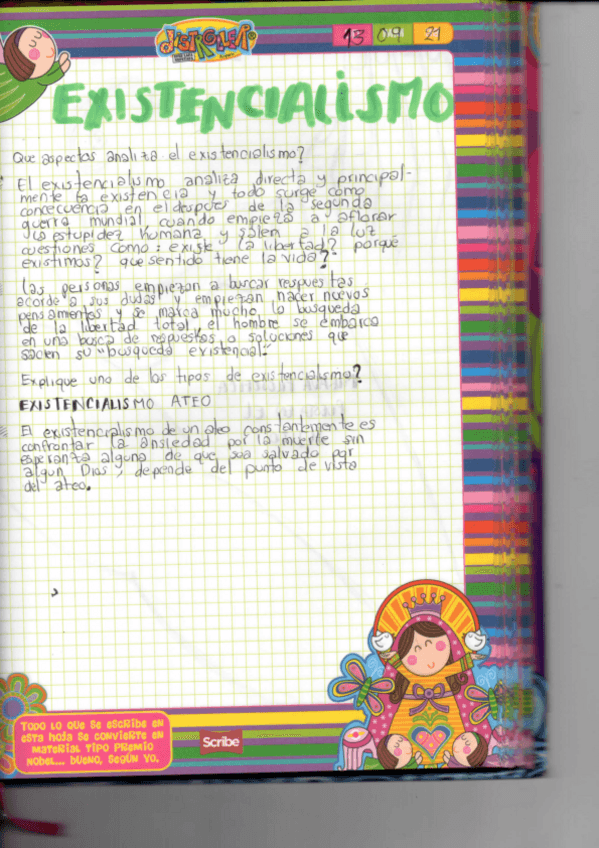 13 09 21
EXISTENCIALISMO
Que aspectos analiza el existencialismo?
El existencialismo analiza directa y principal-
mente la existencia y todo surge como
concecuencia en el despues de la segunda
guerra mundial cuando empieza a aflorar
la estupidez humana y salen a la luz
cuestiones como: existe la libertad? porqué
existimos? que sentido tiene la vida?
Las personas empiezan a buscar respuestas
acorde a sus dudas y empiezan hacer nuevos
pensamientos y se marca mucho la busqueda
de la libertad total, el hombre se embarca
en una busca de respuestas o soluciones que
sacien su "busqueda existencial."
Explique uno de los tipos de existencialismo?
EXISTENCIALISMO ATEO
El existencialismo de un ateo constantemente es
confrontar la ansiedad por la muerte sin
esperanza alguna de que sea salvado por
algun Dios, depende del punto de vista
del ateo.
TODO LO QUE SE ESCRIBE EN
ESTA HOJA SE CONVIERTE EN
MATERIAL TIPO PREMIO
NOBEL... BUENO, SEGÚN YO.
Scribe